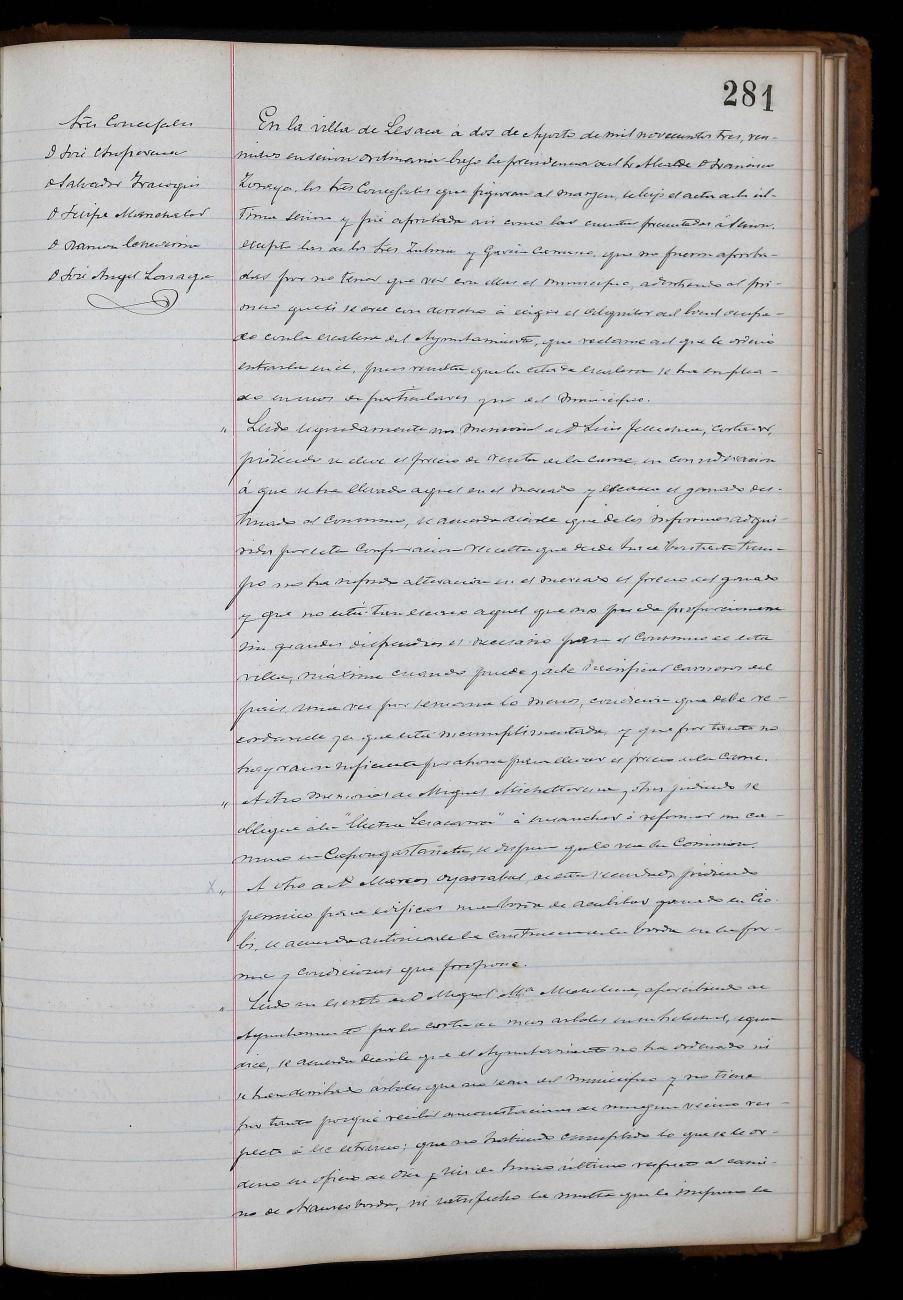 281
Sres Concejales
D José
D Salvador Irazoqui
D Felipe Marichalar
D Ramon
D José Angel
En la villa de Lesaca á dos de Agosto de mil novecientos tres, reu-
nidos en sesion ordinaria bajo la presidencia del Sr Alcalde D Francisco
los Sres Concejales que figuran al margen, se leyó el acta de la úl-
tima sesion y fué aprobada asi como las cuentas presentadas
escepto las de los Sres y Garcia que no fueron aproba-
das por no tener que ver con ellas el municipio, advirtiendo al pri-
mero que si se cree con derecho á exigir el alquiler del local ocupa-
do con la escalera del Ayuntamiento, que reclame del que le ordenó
entrarla en él, pues resulta que la citada escalera se ha emplea-
do en usos de particulares y no del municipio.
" Leido seguidamente un memorial de D Luis cortador,
pidiendo se eleve el precio de venta de la carne, en consideracion
á que se ha elevado aquel en el mercado y escasea el ganado des-
tinado al consumo, se acuerda decirle que de los informes adqui-
ridos por esta Corporacion resulta que desde hace bastante tiem-
po no ha sufrido alteracion en el mercado el precio del ganado
y que no está tan escaso aquel que no pueda proporcionarse
sin grandes dispendios el necesario para el consumo de esta
villa, máxime cuando puede y debe sacrificar carneros del
pais, una vez por semana lo menos, condicion que debe re-
cordarsele ya que está incumplimentada, y que por tanto no
hay razon suficiente por ahora para elevar el precio de la carne.
" A otro memorial de Miguel y otros pidiendo se
obligue á la "Electra Lesacarra" á ensanchar ó reformar un ca-
mino en se dispuso que lo vea la Comision.
X " A otro de D Marcos Oyarzabal, de esta vecindad, pidiendo
permiso para edificar una borda de habilitar ganado en
se acuerda autorizarle la construccion de la borda en la for-
ma y condiciones que propone.
" Leido un escrito de D Miguel Mª Michelena, apercibiendo al
Ayuntamiento por la corta de unos arboles en su heredad, segun
dice, se acuerda decirle que el Ayuntamiento no ha ordenado ni
se han derribado árboles que no sean del municipio y no tiene
por tanto porqué recibir amonestaciones de ningun vecino res-
pecto á ese estremo; que no habiendo cumplido lo que se le or-
denó en oficio de diez y seis de Junio último respecto al cami-
no de ni satisfecho la multa que le impuso la